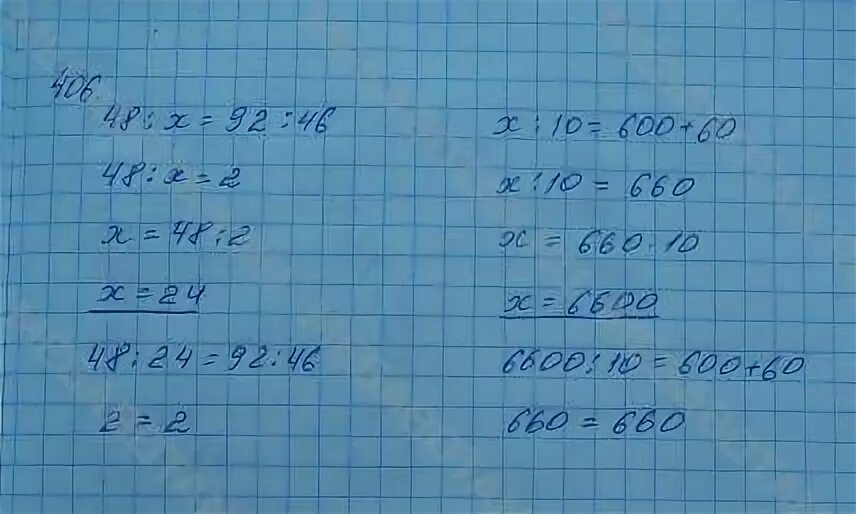 406.
48 : x = 92 : 46
48 : x = 2
x = 48 : 2
x = 24
48 : 24 = 92 : 46
2 = 2
x : 10 = 600 + 60
x : 10 = 660
x = 660 · 10
x = 6600
6600 : 10 = 600 + 60
660 = 660